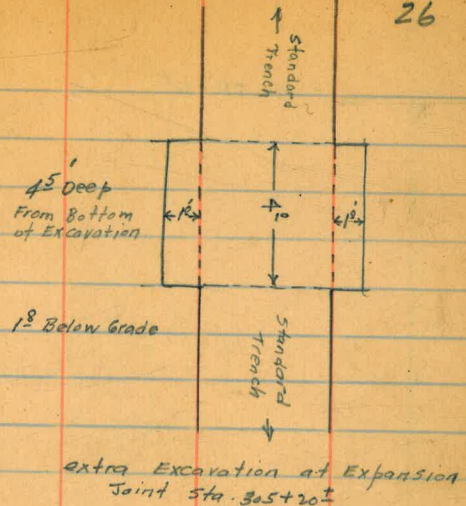 26
Standard
Trench
4.5' Deep
From Bottom
of Excavation
1.0'
4.0
1.0'
1.8 Below Grade
Standard
Trench
extra Excavation at Expansion
Joint Sta. 305+20±